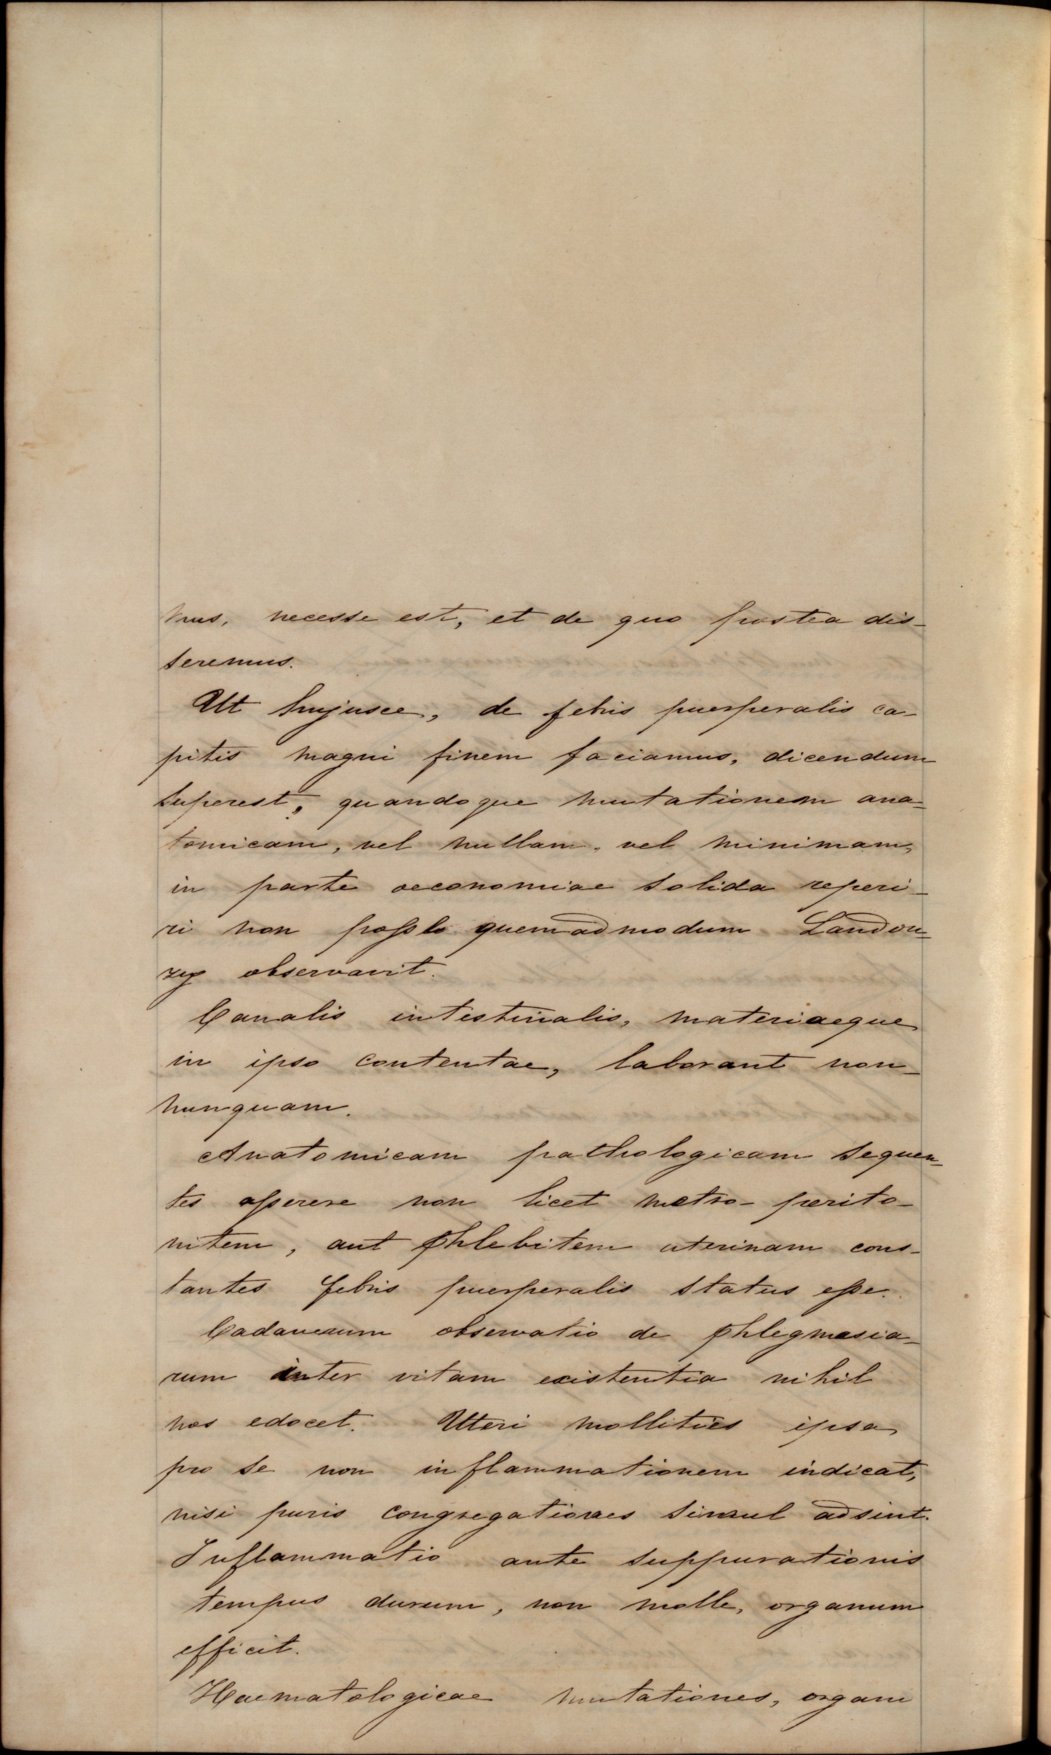 mus, necesse est, et de quo postea dis-
seremus.
Ut hujusce, de febris puerperalis ca-
pitis magni finem faciamus, dicendum
superest, quandoque mutationem ana-
tomicam, vel nullam, vel minimam,
in parte oeconomiae solida reperi-
ri non posse quemadmodum Landou-
zy observavit.
Canalis intestinalis, materiaeque
in ipso contentae, laborant non-
nunquam.
Anatomicam pathologicam sequen-
tes asserere non licet metro-perito-
nitem, aut phlebitem uterinam cons-
tantes febris puerperalis status esse.
Cadaverum observatio de phlegmasia-
rum inter vitam existentia nihil
nos edocet. Uteri mollities ipsa
pro se non inflammationem indicat,
nisi puris congregationes simul adsint.
Inflammatio ante suppurationis
tempus durum, non molle, organum
efficit.
Haematologicae mutationes, organi